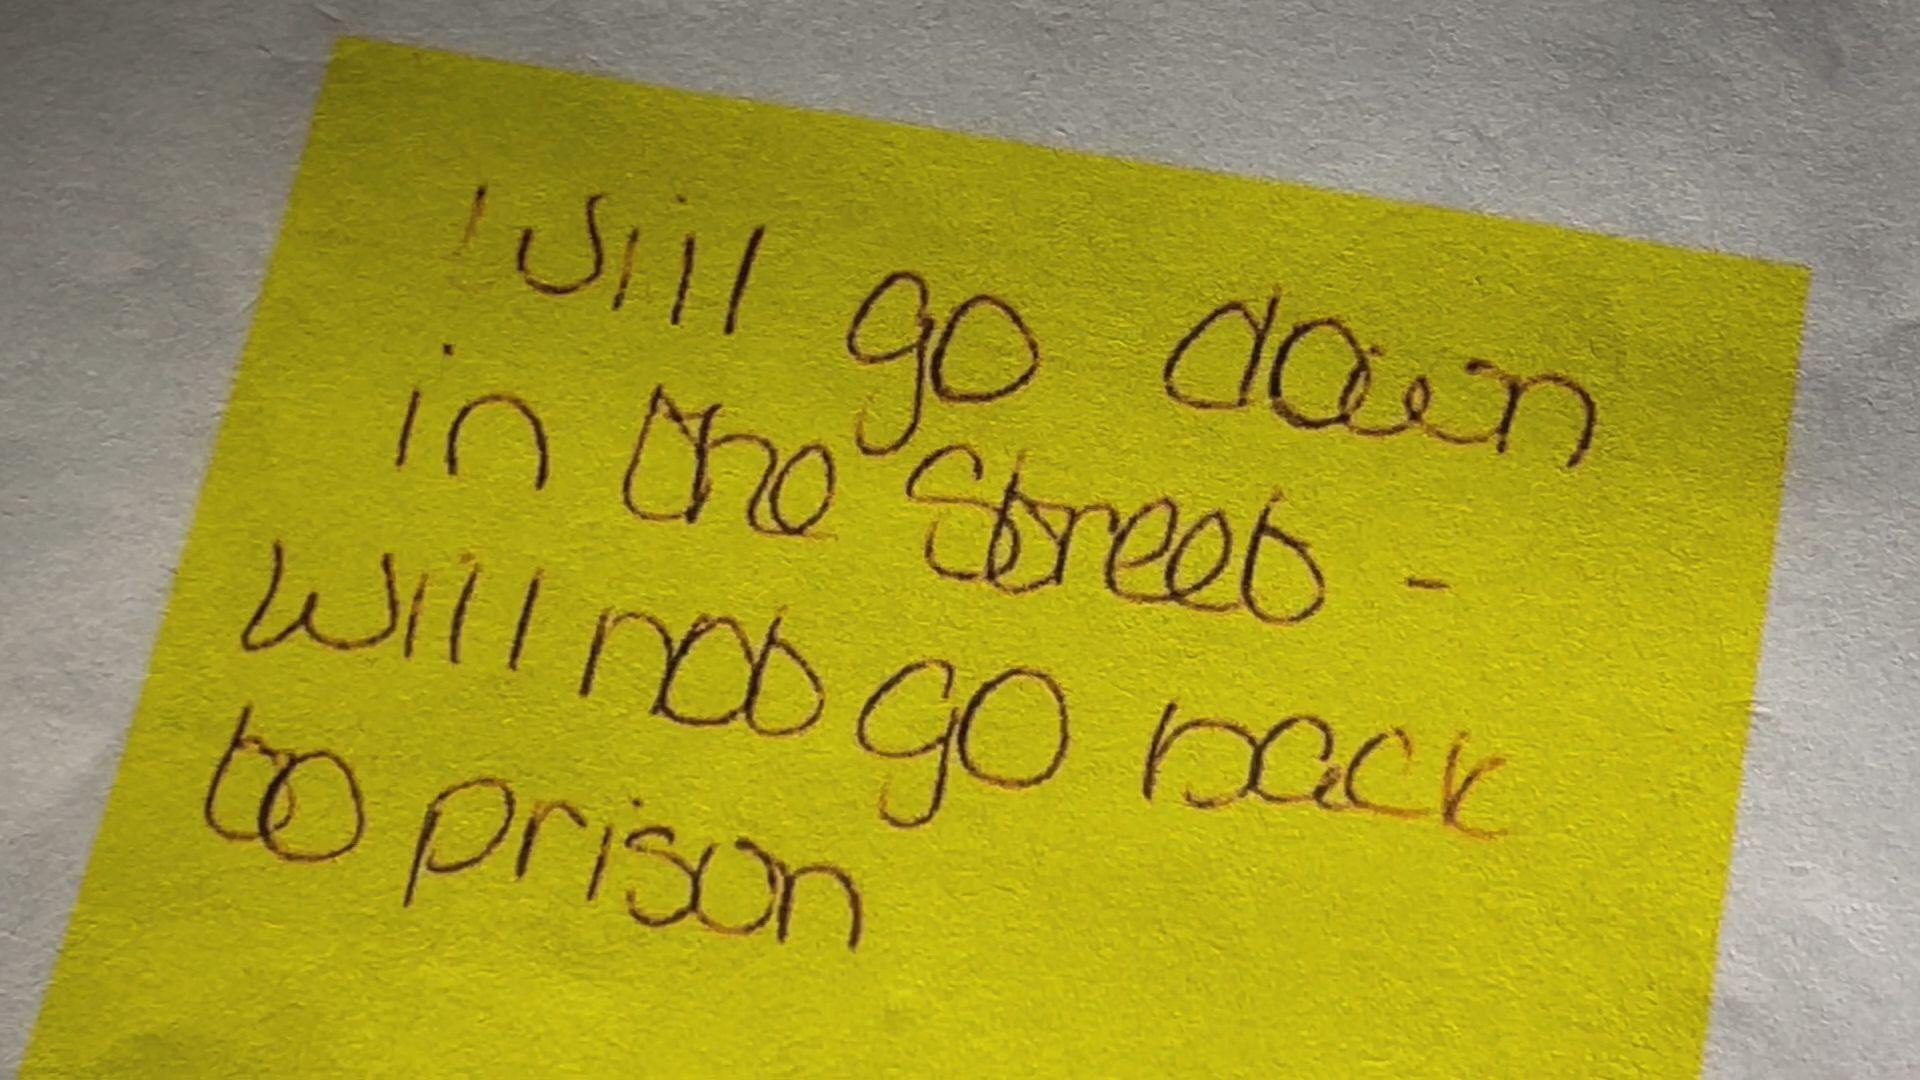 I will go down
in the Street -
will not go back
to prison